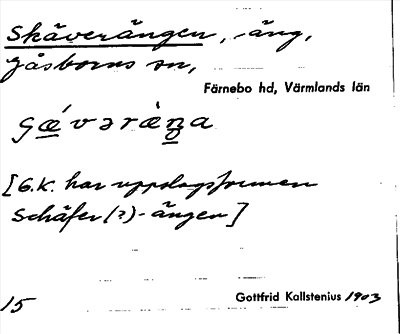 Skäverängen, -äng,
Gåsborns sn,
Färnebo hd, Värmlands län
gǽvəræ̀ŋa
[G.K. har uppslagsformen
Schäfer(?)-ängen]
15
Gottfrid Kallstenius 1903